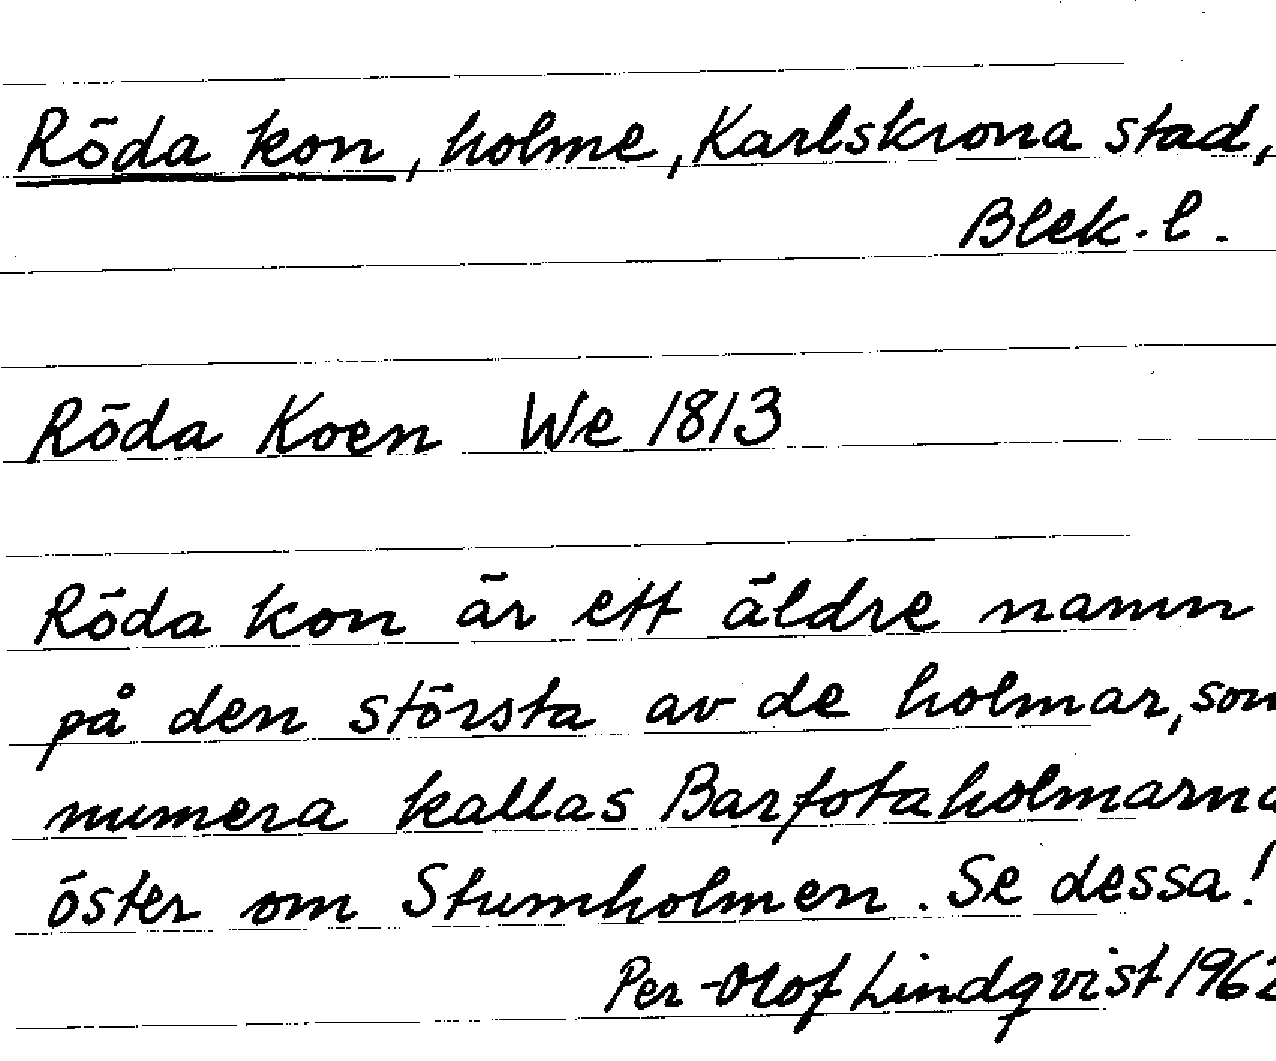 Röda kon, holme, Karlskrona stad,
Blek. l.
Röda Koen We 1813
Röda kon är ett äldre namn
på den största av de holmar, som
numera kallas Barfotaholmarna
öster om Stumholmen. Se dessa!
Per-Olof Lindqvist 1962